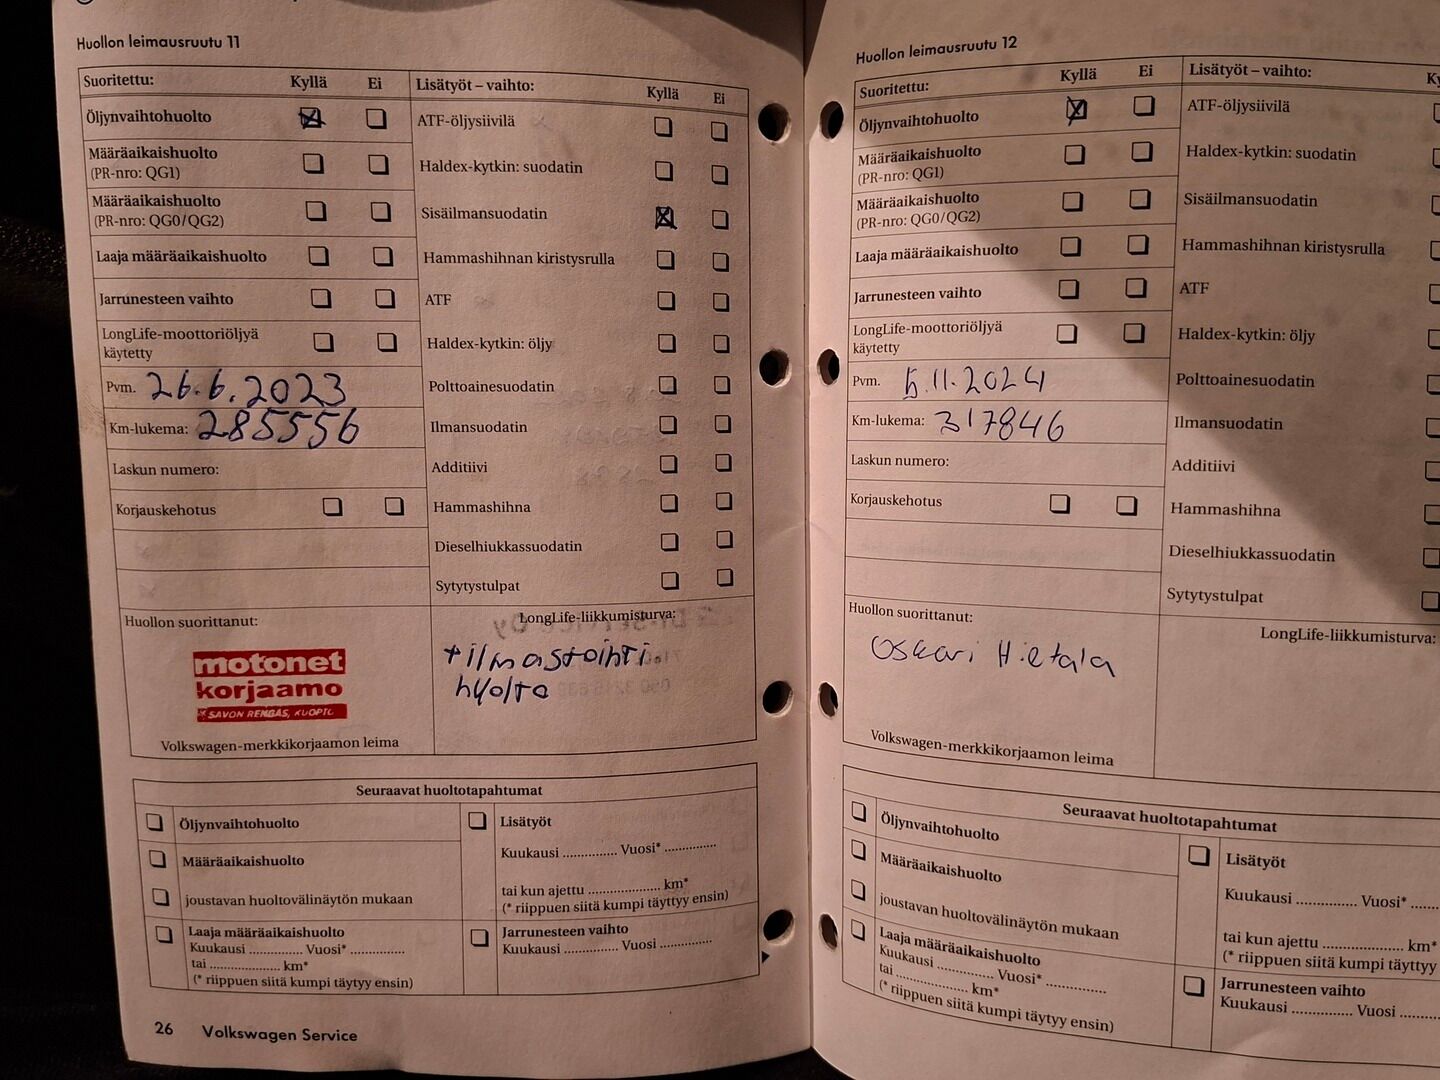 Huollon leimausruutu 11
Suoritettu: Kyllä Ei
Öljynvaihtohuolto
Määräaikaishuolto
(PR-nro: QG1)
Määräaikaishuolto
(PR-nro: QG0/QG2)
Laaja määräaikaishuolto
Jarrunesteen vaihto
LongLife-moottoriöljyä
käytetty
Pvm. 26.6.2023
Km-lukema: 285556
Laskun numero:
Korjauskehotus
Huollon suorittanut:
motonet
korjaamo
SAVON RENGAS, KUOPIO
Volkswagen-merkkikorjaamon leima
Lisätyöt – vaihto: Kyllä Ei
ATF-öljysiivilä
Haldex-kytkin: suodatin
Sisäilmansuodatin
Hammashihnan kiristysrulla
ATF
Haldex-kytkin: öljy
Polttoainesuodatin
Ilmansuodatin
Additiivi
Hammashihna
Dieselhiukkassuodatin
Sytytystulpat
LongLife-liikkumisturva:
+ ilmastointi.
huolto
Seuraavat huoltotapahtumat
Öljynvaihtohuolto
Määräaikaishuolto
joustavan huoltovälinäytön mukaan
Laaja määräaikaishuolto
Kuukausi .............. Vuosi* ..............
tai .................... km*
(* riippuen siitä kumpi täytyy ensin)
Lisätyöt
Kuukausi .............. Vuosi* ..............
tai kun ajettu .................... km*
(* riippuen siitä kumpi täytyy ensin)
Jarrunesteen vaihto
Kuukausi .............. Vuosi ..............
26 Volkswagen Service
Huollon leimausruutu 12
Suoritettu: Kyllä Ei
Öljynvaihtohuolto
Määräaikaishuolto
(PR-nro: QG1)
Määräaikaishuolto
(PR-nro: QG0/QG2)
Laaja määräaikaishuolto
Jarrunesteen vaihto
LongLife-moottoriöljyä
käytetty
Pvm. 5.11.2024
Km-lukema: 317846
Laskun numero:
Korjauskehotus
Huollon suorittanut:
Oskari Hietala
Volkswagen-merkkikorjaamon leima
Lisätyöt – vaihto: Ky
ATF-öljysiivilä
Haldex-kytkin: suodatin
Sisäilmansuodatin
Hammashihnan kiristysrulla
ATF
Haldex-kytkin: öljy
Polttoainesuodatin
Ilmansuodatin
Additiivi
Hammashihna
Dieselhiukkassuodatin
Sytytystulpat
LongLife-liikkumisturva:
Seuraavat huoltotapahtumat
Öljynvaihtohuolto
Määräaikaishuolto
joustavan huoltovälinäytön mukaan
Laaja määräaikaishuolto
Kuukausi .............. Vuosi* ..............
tai .................... km*
(* riippuen siitä kumpi täytyy ensin)
Lisätyöt
Kuukausi .............. Vuosi* ......
tai kun ajettu .................... km*
(* riippuen siitä kumpi täytyy
Jarrunesteen vaihto
Kuukausi .............. Vuosi ........